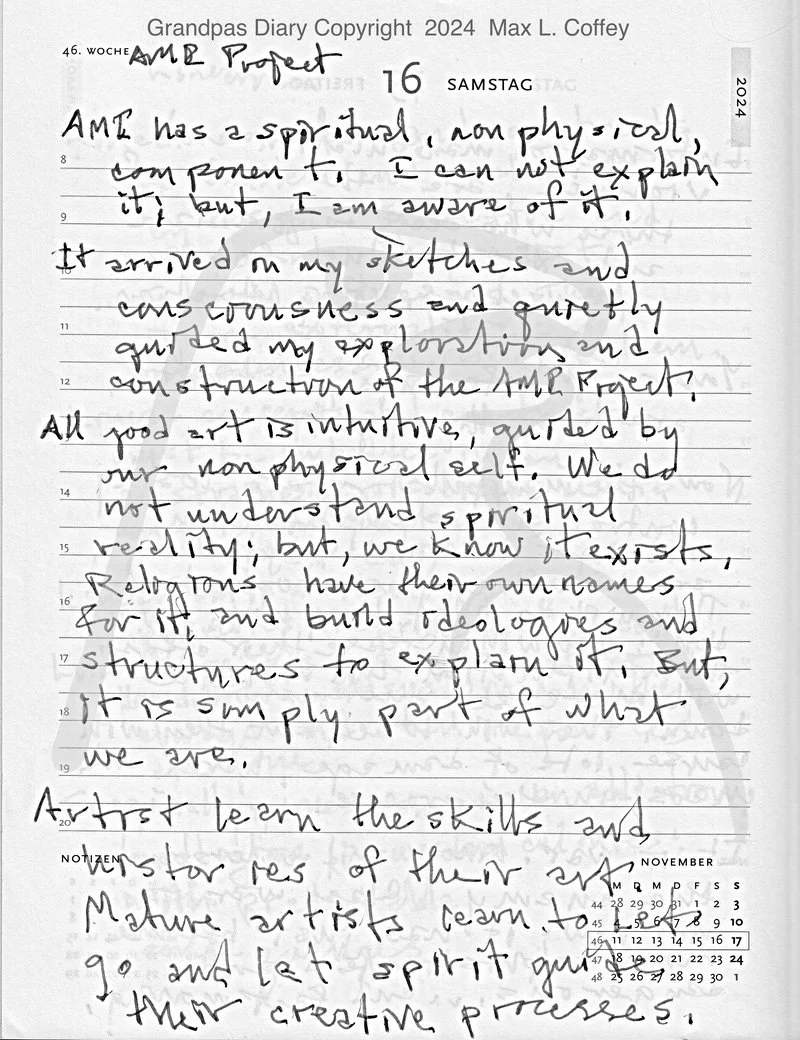 Grandpas Diary Copyright 2024 Max L. Coffey
46. WOCHE AMR Project
16 SAMSTAG
2024
AMR has a spiritual, non physical,
8 component. I can not explain
9 it; but, I am aware of it.
10 It arrived on my sketches and
consciousness and quietly
11 guided my exploration and
12 construction of the AMR Project.
All good art is intuitive, guided by
our non physical self. We do
14 not understand spiritual
15 reality; but, we know it exists,
Religions have their own names
16 for it, and build ideologies and
17 structures to explain it. But,
18 it is simply part of what
19 we are.
20 Artist learn the skills and
NOTIZEN histories of their art
Mature artists learn to let
go and let spirit guide
their creative processes.
NOVEMBER
M D M D F S S
44 28 29 30 31 1 2 3
45 4 5 6 7 8 9 10
46 11 12 13 14 15 16 17
47 18 19 20 21 22 23 24
48 25 26 27 28 29 30 1